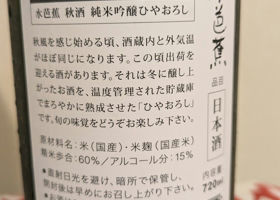 水芭蕉 秋酒 純米吟醸ひやおろし
秋風を感じ始める頃、酒蔵内と外気温
がほぼ同じになります。この頃出荷を
迎える酒があります。それは冬に醸し上
がったお酒を、温度管理された貯蔵庫
でまろやかに熟成させた「ひやおろし」
です。旬の味覚をどうぞお楽しみ下さい。
原材料名:米(国産米)・米麹(国産米)
精米歩合:60%/アルコール分:15%
●直射日光を避け、暗所で保管し、
開封後は早めにお召し上がり下さい。
●お酒は
芭蕉
品目
日本酒
内容量
720ml